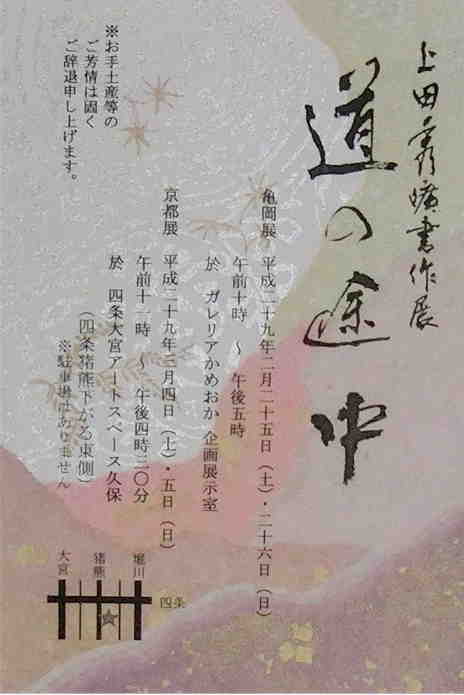 上田霽曠書作展
道の途中
亀岡展 平成二十九年二月二十五日(土)・二十六日(日)
午前十時 〜 午後五時
於 ガレリアかめおか 企画展示室
京都展 平成二十九年三月四日(土)・五日(日)
午前十一時 〜 午後四時三〇分
於 四条大宮アートスペース久保
(四条猪熊下がる東側)
※駐車場はありません
※お手土産等の
ご芳情は固く
ご辞退申し上げます。
大宮
猪熊
堀川
四条